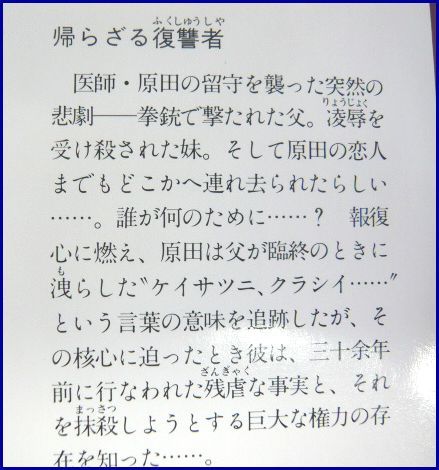 帰らざる復讐者
医師・原田の留守を襲った突然の
悲劇――拳銃で撃たれた父。凌辱を
受け殺された妹。そして原田の恋人
までもどこかへ連れ去られたらしい
……。誰が何のために……？　報復
心に燃え、原田は父が臨終のときに
洩らした〝ケイサツニ、クラシイ……〟
という言葉の意味を追跡したが、そ
の核心に迫ったとき彼は、三十余年
前に行なわれた残虐な事実と、それ
を抹殺しようとする巨大な権力の存
在を知った……。